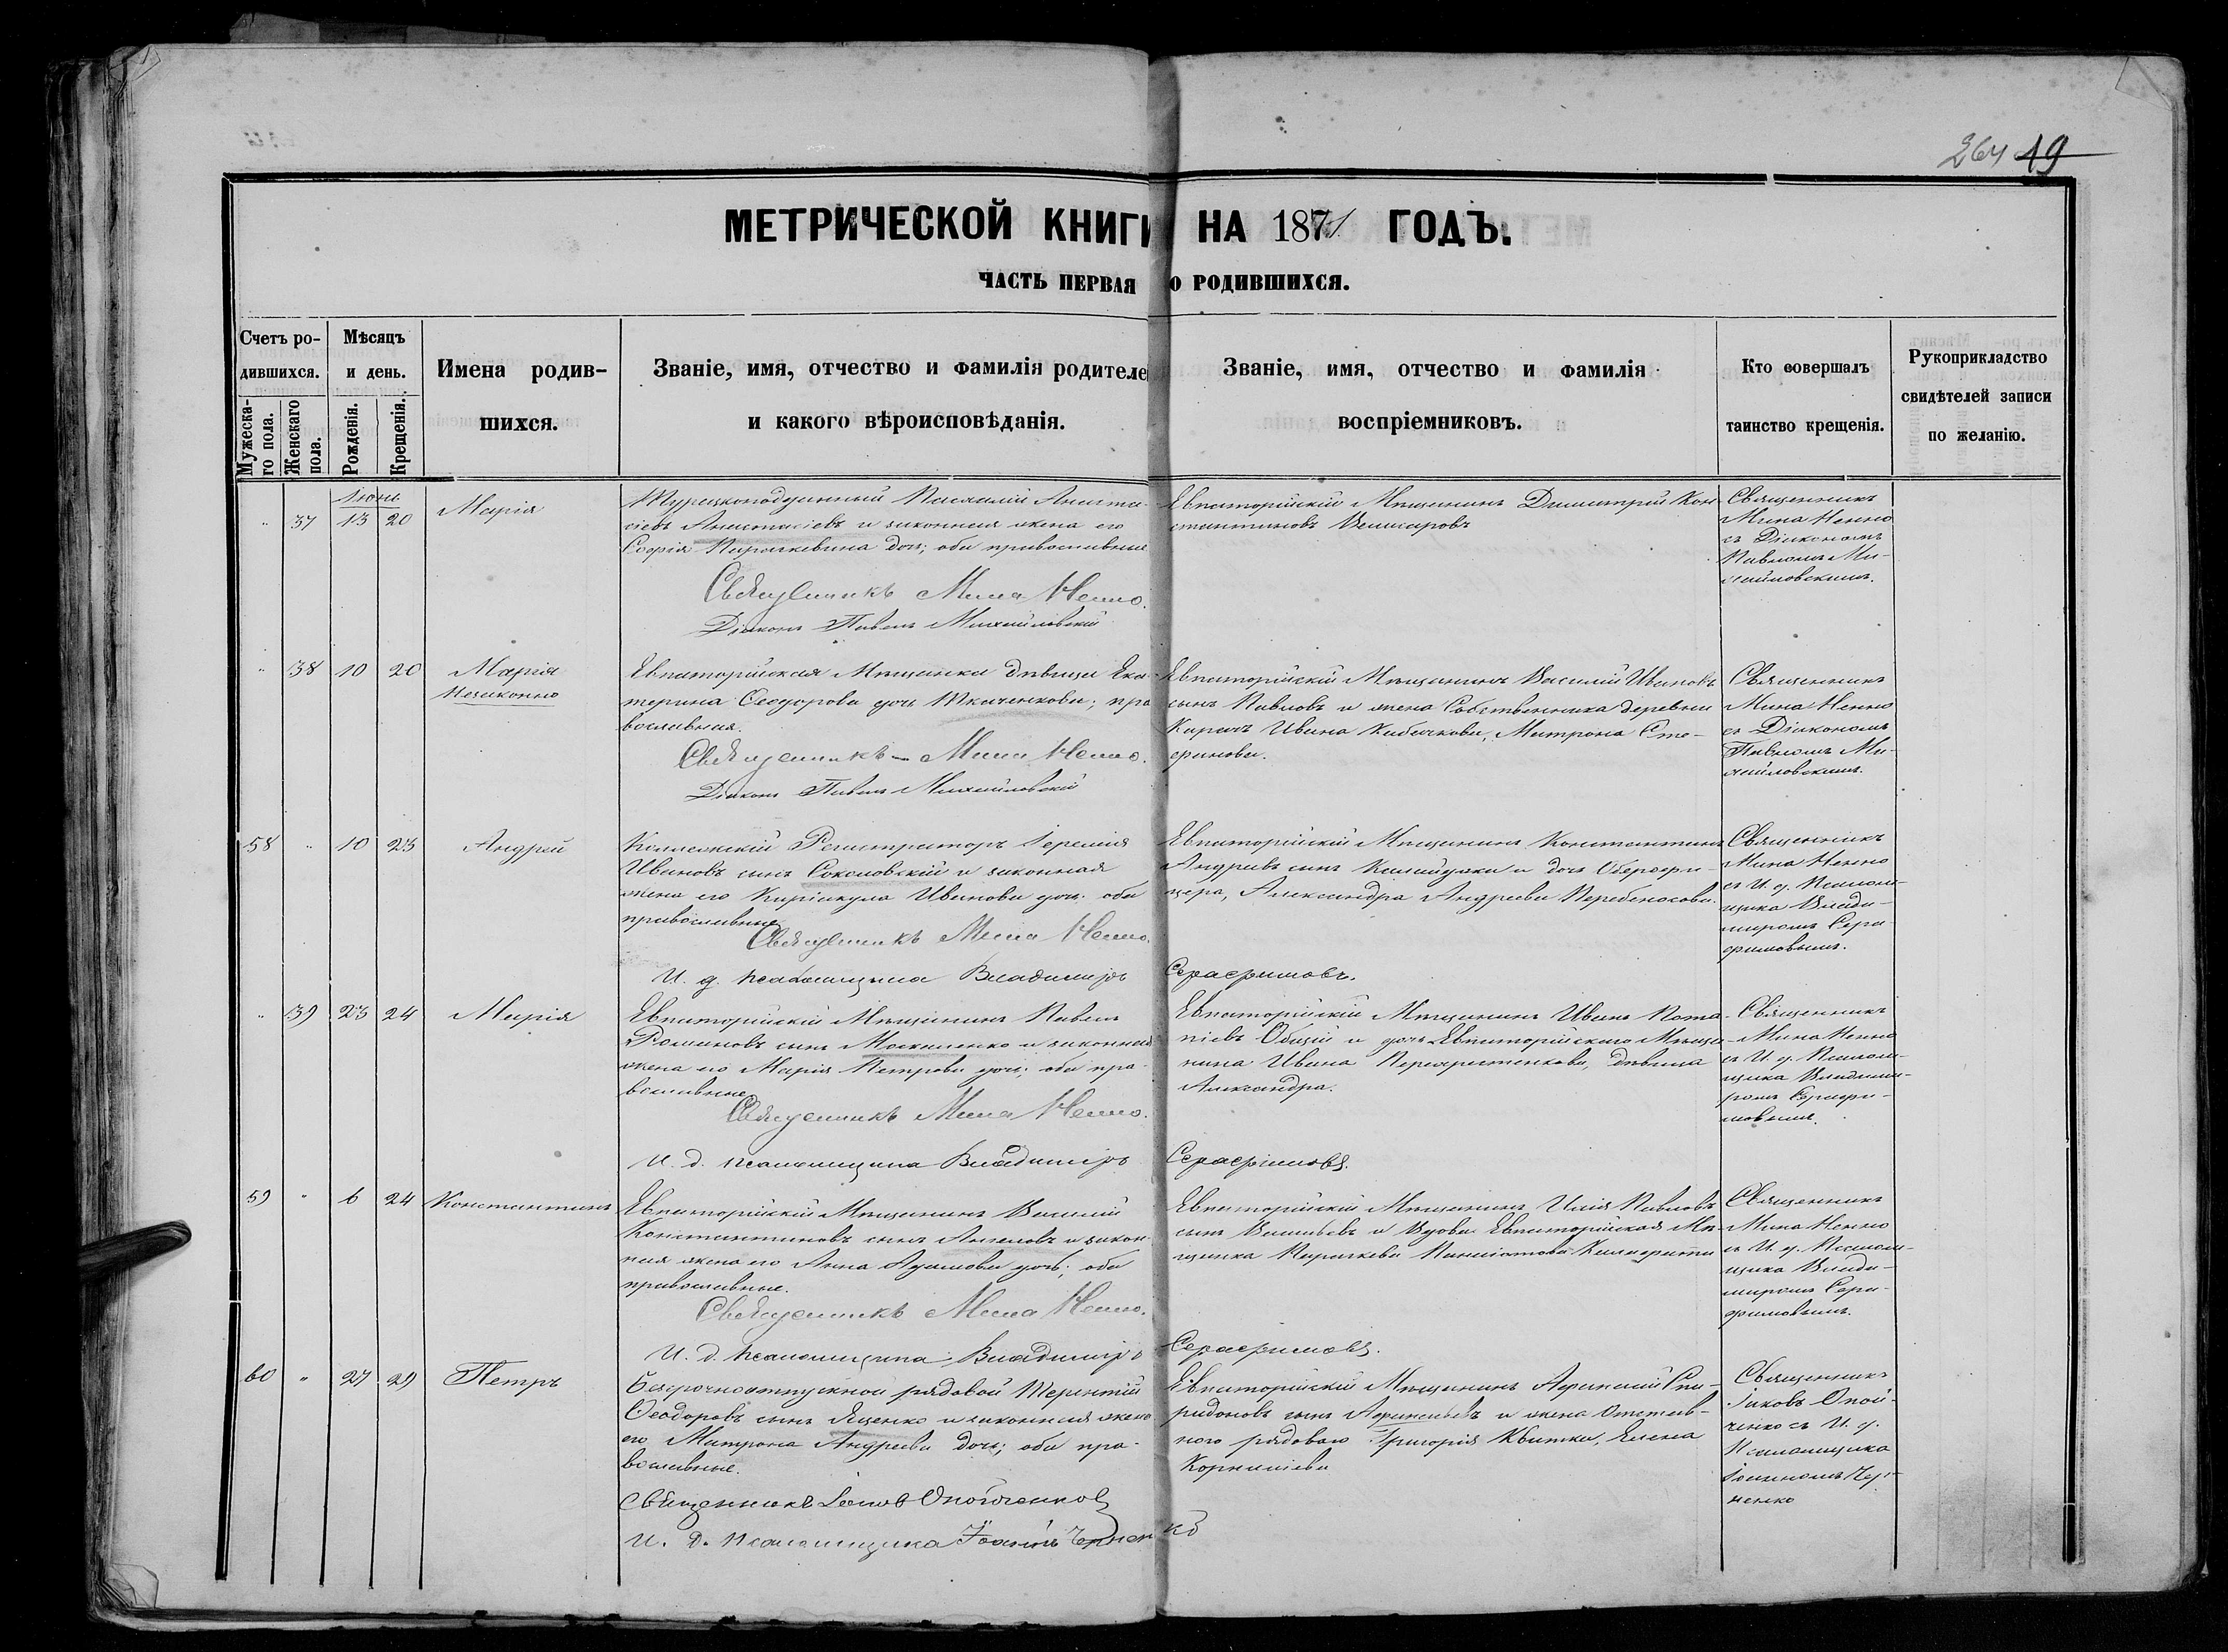 264 19
МЕТРИЧЕСКОЙ КНИГИ НА 1871 ГОДЪ.
ЧАСТЬ ПЕРВАЯ О РОДИВШИХСЯ.
Счетъ родившихся.
Мужескаго пола.
Женскаго пола.
Мѣсяцъ и день.
Рожденія.
Крещенія.
Имена родившихся.
Званіе, имя, отчество и фамилія родителе
и какого вѣроисповѣданія.
Званіе, имя, отчество и фамилія
воспріемниковъ.
Кто совершалъ
таинство крещенія.
Рукоприкладство
свидѣтелей записи
по желанію.
Іюнь
" 37 13 20 Марія
Турецкоподданный Анаста-
сіевъ Анастасіевъ и законная жена его
Софія дочь; оба православные
Священникъ Мина Ненно.
Діаконъ Павелъ Михайловскій
Евпаторійскій Мѣщанинъ Димитрій Кон-
стантиновъ
Священникъ
Мина Ненно
съ Діакономъ
Павломъ Ми-
хайловскимъ.
" 38 10 20 Марія
Незаконно
Евпаторійская Мѣщанка дѣвица Ека-
терина Ѳеодорова дочь Ткаченкова; пра-
вославная.
Священникъ Мина Ненно.
Діаконъ Павелъ Михайловскій
Евпаторійскій Мѣщанинъ Василій Ивановъ
сынъ Павловъ и жена Собственника деревни
Ивана Матрона Сте-
фанова.
Священникъ
Мина Ненно
съ Діакономъ
Павломъ Ми-
хайловскимъ.
58 " 10 23 Андрей
Коллежскій Регистраторъ Іеремія
Ивановъ сынъ Соколовскій и законная
жена его Киріакула Иванова дочь; оба
православные
Священникъ Мина Ненно.
И. д. псаломщика Владиміръ Серафимовъ.
Евпаторійскій Мѣщанинъ Константинъ
Андреевъ сынъ и дочь Оберофи-
цера, Александра Андреева Перебеносова.
Священникъ
Мина Ненно
съ И. д. Псалом-
щика Влади-
миромъ Сера-
фимовымъ.
" 39 23 24 Марія
Евпаторійскій Мѣщанинъ Павелъ
Романовъ сынъ Москаленко и законная
жена его Марія Петрова дочь; оба пра-
вославные
Священникъ Мина Ненно.
И. д. псаломщика Владиміръ Серафимовъ.
Евпаторійскій Мѣщанинъ Иванъ Пота-
піевъ Общій и дочь Евпаторійскаго Мѣща-
нина Ивана дѣвица
Александра.
Священникъ
Мина Ненно
съ И. д. Псалом-
щика Владими-
ромъ Серафи-
мовымъ.
59 " 6 24 Константинъ
Евпаторійскій Мѣщанинъ Василій
Константиновъ сынъ Ангеловъ и закон-
ная жена его Анна Адамова дочь; оба
православные.
Священникъ Мина Ненно.
И. д. псаломщика Владиміръ Серафимовъ.
Евпаторійскій Мѣщанинъ Илія Павловъ
сынъ Васильевъ и Вдова Евпаторійская Мѣ-
щанка
Священникъ
Мина Ненно
съ И. д. Псалом-
щика Влади-
миромъ Сера-
фимовымъ.
60 " 27 29 Петръ
Безсрочноотпускной рядовой Терентій
Ѳеодоровъ сынъ Яценко и законная жена
его Матрона Андреева дочь; оба пра-
вославные.
Священникъ Іаковъ Опойченковъ
И. д. псаломщика Іоаннъ Черненко
Евпаторійскій Мѣщанинъ Афанасій Спи-
ридоновъ сынъ Афанасьевъ и жена Отстав-
ного рядоваго Григорія Квитки, Елена
Корниліева
Священникъ
Іаковъ Опой-
ченко съ И. д.
Псаломщика
Іоанномъ Чер-
ненко